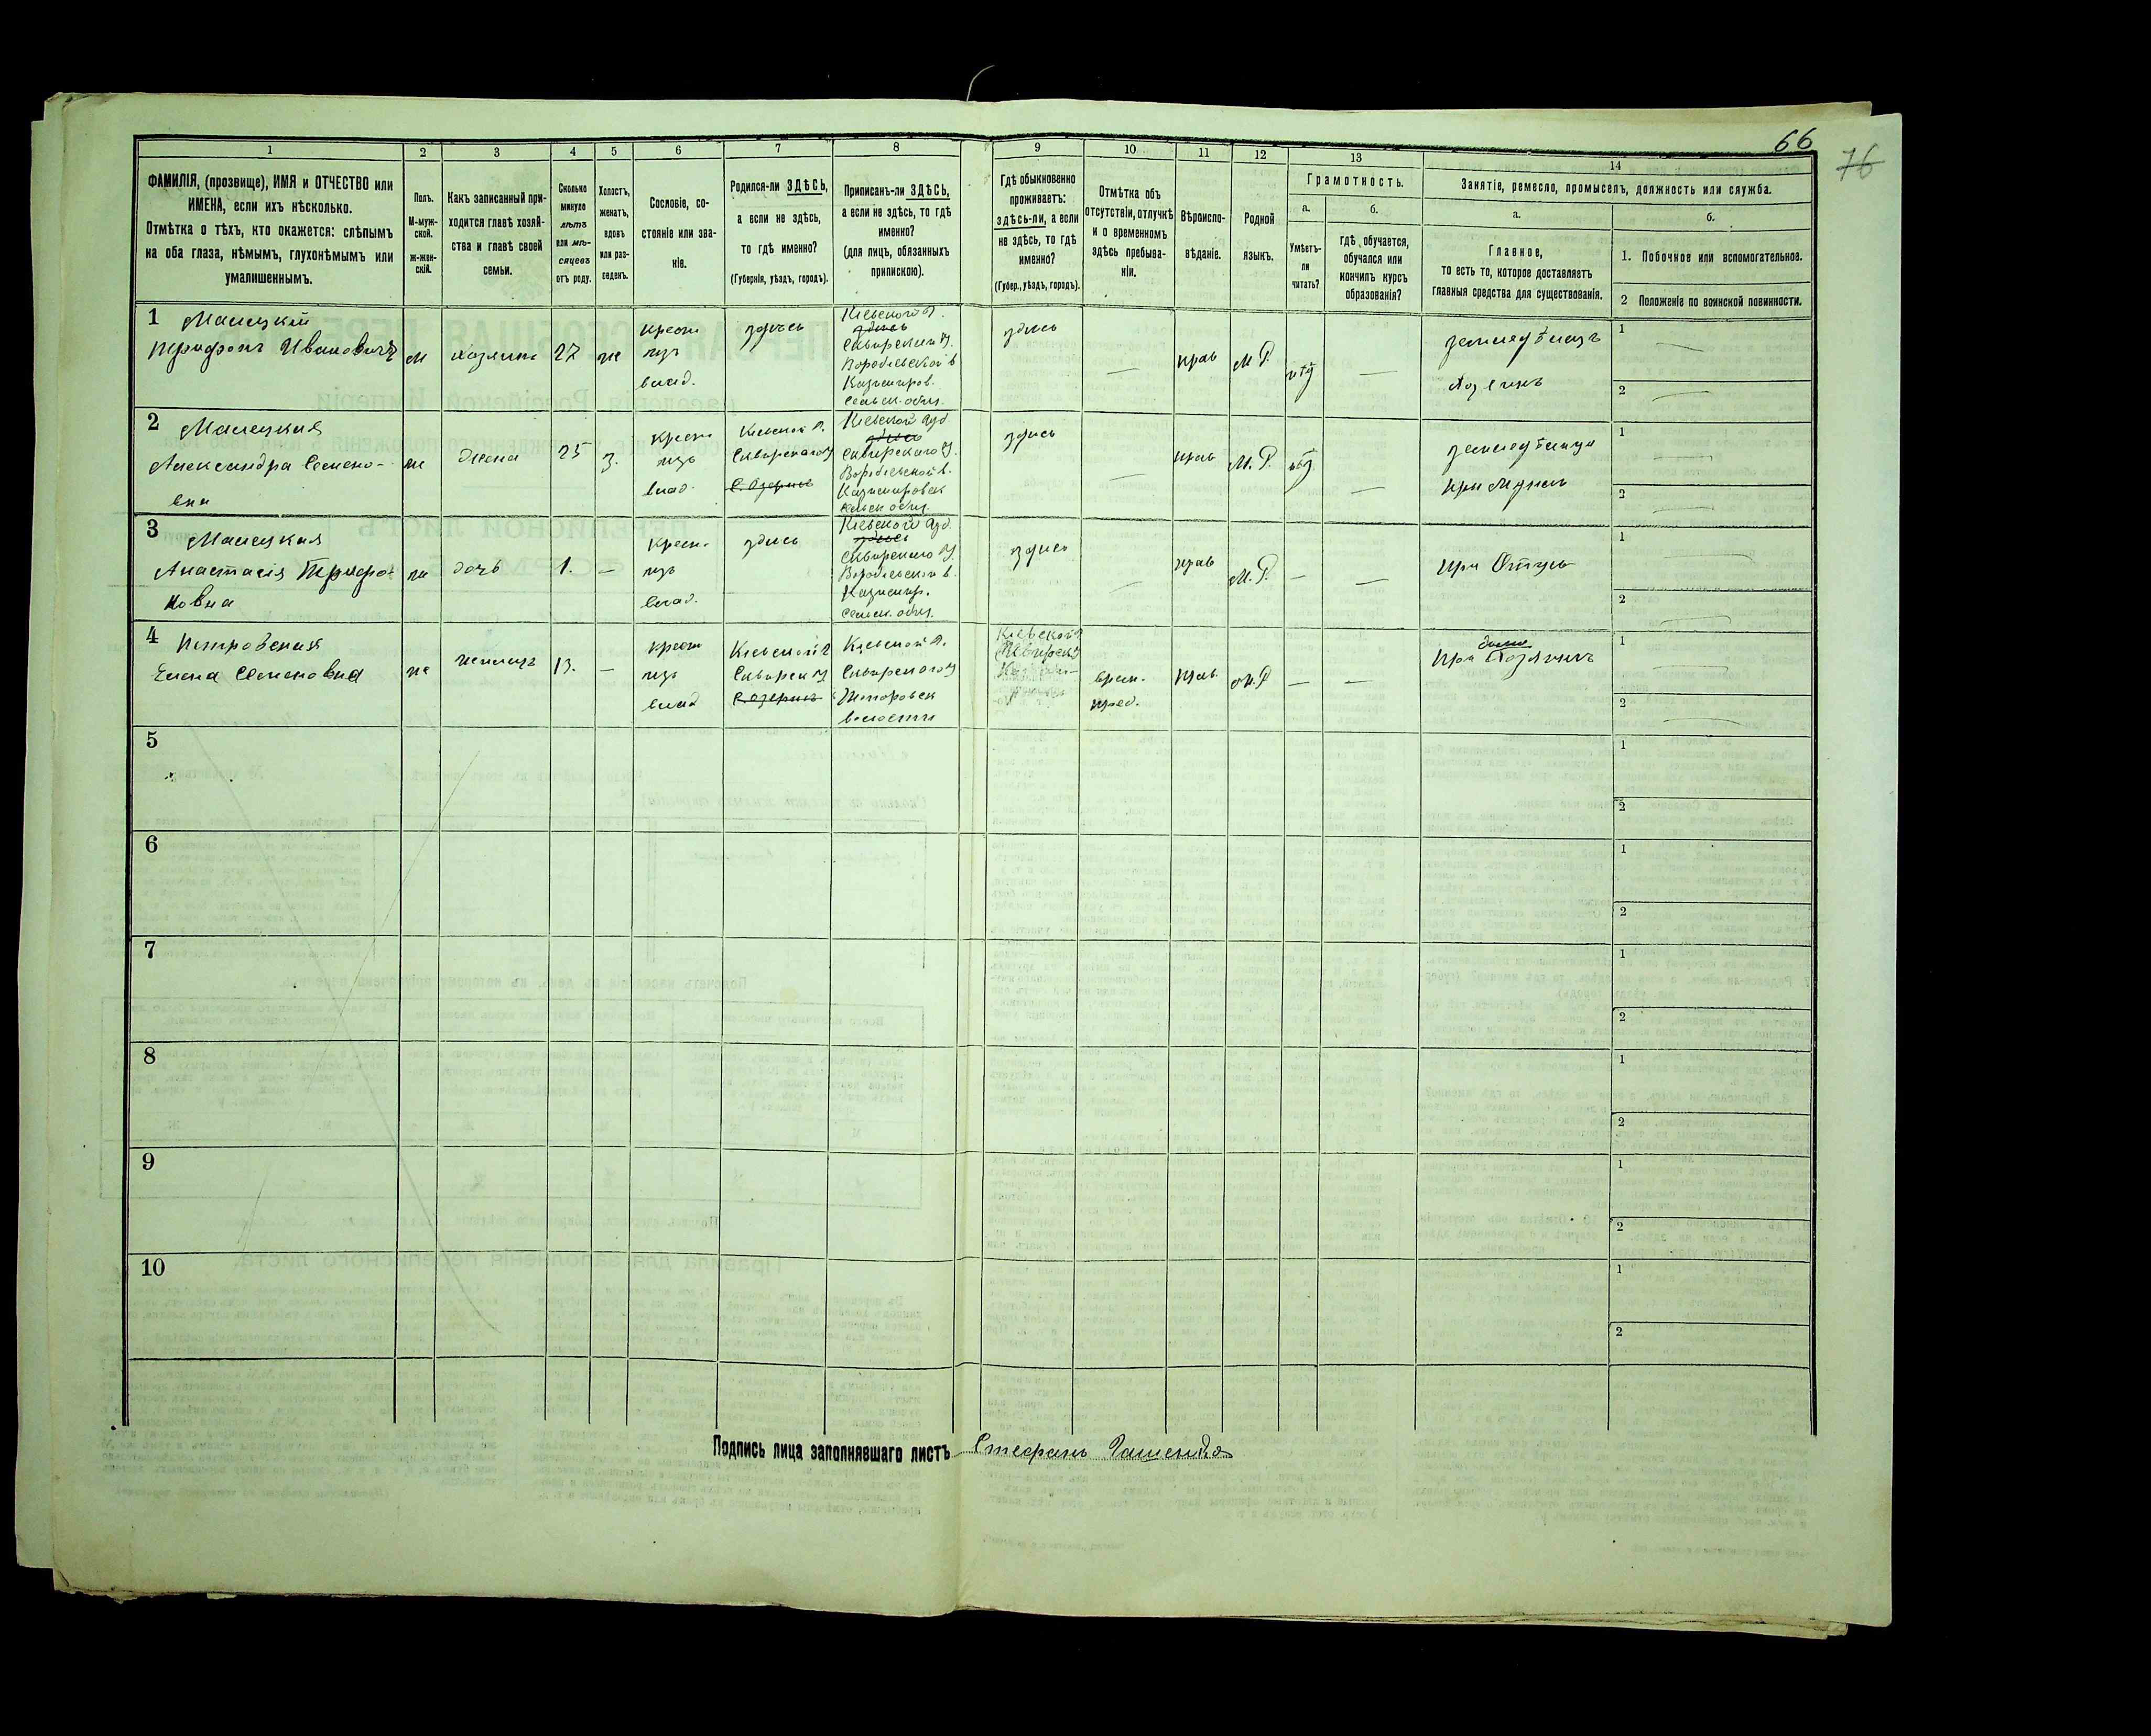 66
76
1
2
3
4
5
6
7
8
9
10
11
12
13
14
ФАМИЛІЯ, (прозвище), ИМЯ и ОТЧЕСТВО или
ИМЕНА, если ихъ нѣсколько.
Отмѣтка о тѣхъ, кто окажется: слѣпымъ
на оба глаза, нѣмымъ, глухонѣмымъ или
умалишеннымъ.
Полъ.
М-муж-
ской.
ж-жен-
скій.
Какъ записанный при-
ходится главѣ хозяй-
ства и главѣ своей
семьи.
Сколько
минуло
лѣтъ
или мѣ-
сяцевъ
отъ роду.
Холостъ,
женатъ,
вдовъ
или раз-
веденъ.
Сословіе, со-
стояніе или зва-
ніе.
Родился-ли ЗДѢСЬ,
а если не здѣсь,
то гдѣ именно?
(Губернія, уѣздъ, городъ).
Приписанъ-ли ЗДѢСЬ,
а если не здѣсь, то гдѣ
именно?
(для лицъ, обязанныхъ
припискою).
Гдѣ обыкновенно
проживаетъ:
здѣсь-ли, а если
не здѣсь, то гдѣ
именно?
(Губер., уѣздъ, городъ).
Отмѣтка объ
отсутствіи, отлучкѣ
и о временномъ
здѣсь пребыва-
ніи.
Вѣроиспо-
вѣданіе.
Родной
языкъ.
Грамотность.
а.
Умѣетъ-
ли
читать?
б.
гдѣ обучается,
обучался или
кончилъ курсъ
образованія?
Занятіе, ремесло, промыселъ, должность или служба.
а.
Главное,
то есть то, которое доставляетъ
главныя средства для существованія.
б.
1. Побочное или вспомогательное.
2 Положеніе по воинской повинности.
1 Малецкій
Трифонъ Ивановичъ
м
хозяинъ
27
же
крест
изъ
влад.
здѣсь
Кіевской Г.
здѣсь
Сквирскаго У.
Казимиров.
Сельск. общ.
здѣсь
прав
М.Р.
нѣт
—
—
земледѣлецъ
хозяинъ
1
—
2
—
2 Малецкая
Александра Семено-
вна
же
жена
25
з.
крест
изъ
влад.
Кіевской Г.
Сквирскаго У
С. Озерна
Кіевской Губ
здѣсь
Сквирскаго У.
Казимировск
сельск общ.
здѣсь
—
прав
М.Р.
нѣт
—
земледѣлица
при Мужѣ
1
—
2
—
3 Малецкая
Анастасія Трифо-
новна
же
дочь
1.
—
крест.
изъ
влад.
здѣсь
Кіевской Губ.
здѣсь
Сквирскаго У.
Казимир.
Сельск. общ.
здѣсь
—
прав
М.Р.
—
—
при Отцѣ
1
—
2
—
4 Петровская
Елена Семеновна
же
13.
—
крест
изъ
влад
Кіевской Г
Сквирск У
С. Озерна
Кіевской Г.
Сквирскаго У
волости
Кіевской Г
Сквирск У
врем.
преб.
прав.
М.Р
—
—
при Хозяинѣ
1
—
2
—
5
1
2
6
1
2
7
1
2
8
1
2
9
1
2
10
1
2
Подпись лица заполнявшаго листъ Стефанъ